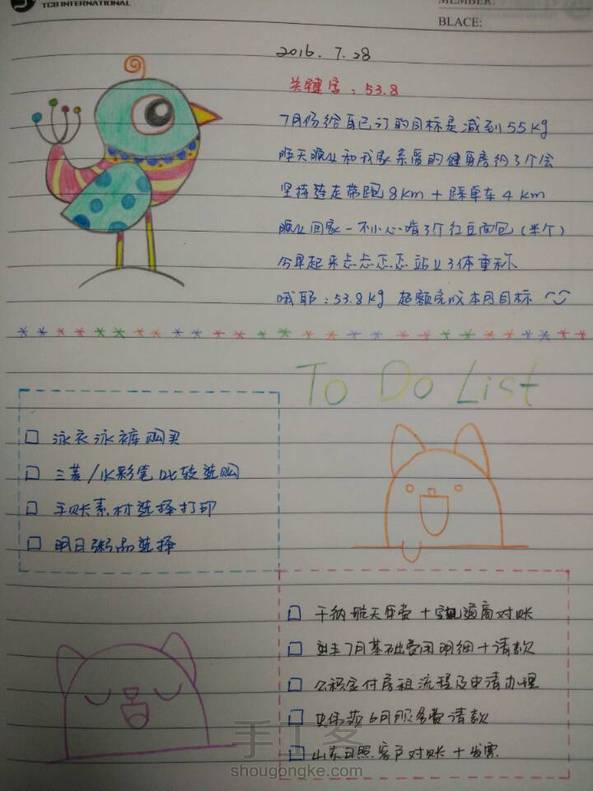 TCB INTERNATIONAL
MEMBER:
BLACE:
2016.7.28
关键字:53.8
7月份给自己订的目标是减到55kg
昨天晚上和我家亲爱的健身房约了个会
坚持跑走带跑8km+踩单车4km
晚上回家一不小心啃了个红豆面包(半个)
今早起来忐忐忑忑站上了体重称
哦耶:53.8kg 超额完成本月目标
To Do List
泳衣泳裤购买
三菱/水彩笔比较选购
手账素材选择打印
明日粥品选择
7月基础费用明细+请款
公积金付房租流程及申请办理
6月服务费请款
山东日照客户对账+发票
手工客
shougongke.com